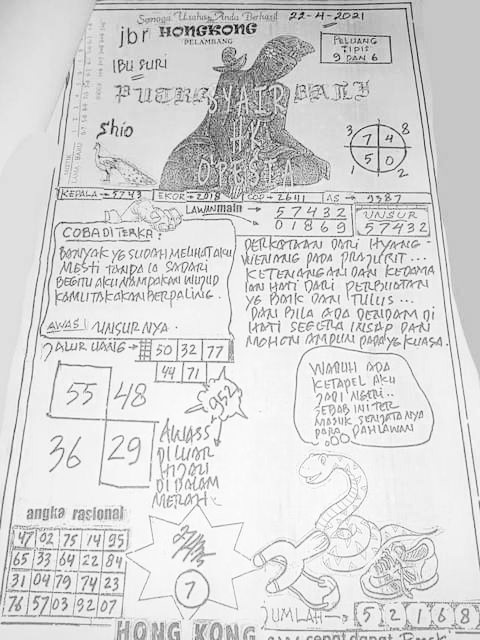 Semoga Usaha Anda Berhasil
22-4-2021
jbr HONGKONG
PELAMBANG
PELUANG
TIPIS
9 DAN 6
IBU SURI
PUTRA BALI
SYAIR
HK
OPESIA
Shio
3 8
7 4
5 0
1 2
KEPALA → 5743 EKOR → 2018 COP → 2641 AS → 9387
LAWAN main → 57432
01869
UNSUR
57432
COBA DITERKA:
BANYAK YG SUDAH MELIHAT AKU
MESTI TANPA IA SADARI
BEGITU AKU NAMPAKAN WUJUD
KAMU TAKAKAN BERPALING.
AWAS! UNSURNYA.
PERKATAAN DARI HYANG-
WENIANG PADA PRAJURIT...
KETENANGAN DAN KEDAMA
IAN HATI DARI PERBUATAN
YG BAIK DAN TULUS...
DAN BILA ADA DENDAM DI
HATI SEGERA INSAP DAN
MOHON AMPUN PADA YG KUASA.
JALUR UANG → 50 32 77
44 71
952
55 48
36 29
AWASS
DILUAR
HIJAU
DI DALAM
MERAH
WADUH ADA
KETAPEL AKU
JADI NGERI..
SEBAB INI TER
MASUK SENJATANYA
PARA PAHLAWAN
angka rasional
47 02 75 14 95
65 33 64 22 84
31 04 79 74 23
76 57 03 92 07
7
JUMLAH → 5 2 1 6 8
HONG KONG